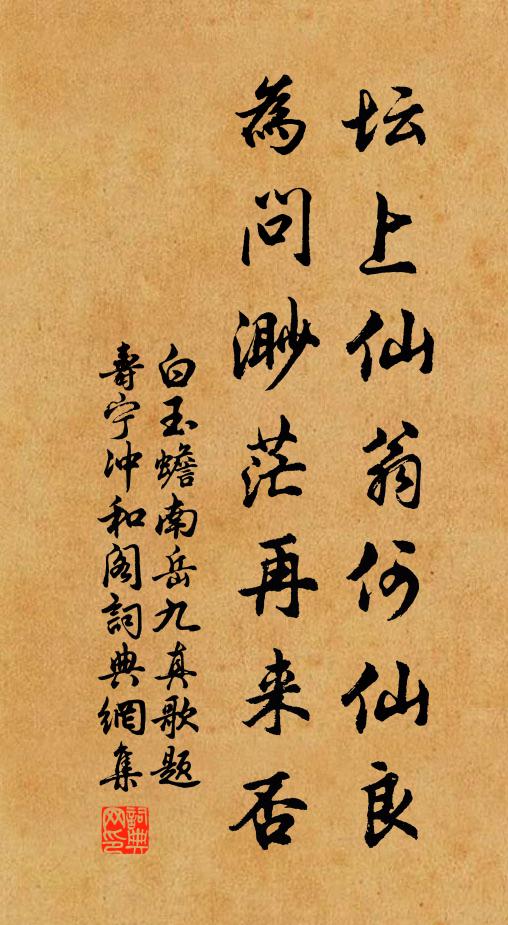 坛上仙翁何仙良
為问渺茫再来否
白玉蟾南岳九真歌题
壽宁冲和阁詞典網集
詞典网印